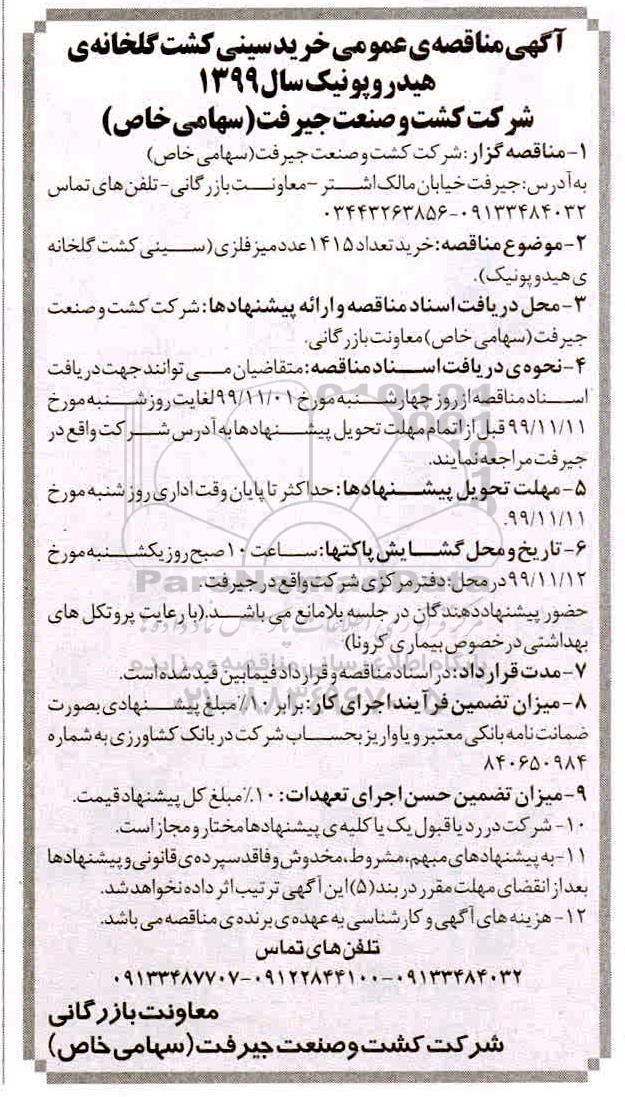 آگهی مناقصه‌ی عمومی خرید سینی کشت گلخانه‌ی
هیدروپونیک سال ۱۳۹۹
شرکت کشت و صنعت جیرفت (سهامی خاص)
۱- مناقصه گزار: شرکت کشت و صنعت جیرفت (سهامی خاص)
به آدرس: جیرفت خیابان مالک اشتر – معاونت بازرگانی - تلفن های تماس
۰۳۴۴۳۲۶۳۸۵۶-۰۹۱۳۳۴۸۴۰۳۲
۲- موضوع مناقصه: خرید تعداد ۱۴۱۵ عدد میز فلزی (سینی کشت گلخانه
ی هیدوپونیک).
۳- محل دریافت اسناد مناقصه و ارائه پیشنهادها: شرکت کشت و صنعت
جیرفت (سهامی خاص) معاونت بازرگانی.
۴- نحوه‌ی دریافت اسناد مناقصه: متقاضیان می توانند جهت دریافت
اسناد مناقصه از روز چهارشنبه مورخ ۹۹/۱۱/۰۱ لغایت روز شنبه مورخ
۹۹/۱۱/۱۱ قبل از اتمام مهلت تحویل پیشنهادها به آدرس شرکت واقع در
جیرفت مراجعه نمایند.
۵- مهلت تحویل پیشنهادها: حداکثر تا پایان وقت اداری روز شنبه مورخ
۹۹/۱۱/۱۱.
۶- تاریخ و محل گشایش پاکتها: ساعت ۱۰ صبح روز یکشنبه مورخ
۹۹/۱۱/۱۲ در محل: دفتر مرکزی شرکت واقع در جیرفت.
حضور پیشنهاددهندگان در جلسه بلامانع می باشد. (با رعایت پروتکل های
بهداشتی در خصوص بیماری کرونا)
۷- مدت قرارداد: در اسناد مناقصه و قرارداد فیمابین قید شده است.
۸- میزان تضمین فرآیند اجرای کار: برابر ۱۰٪ مبلغ پیشنهادی بصورت
ضمانت نامه بانکی معتبر و یا واریز بحساب شرکت در بانک کشاورزی به شماره
۸۴۰۶۵۰۹۸۴
۹- میزان تضمین حسن اجرای تعهدات: ۱۰٪ مبلغ کل پیشنهاد قیمت.
۱۰- شرکت در رد یا قبول یک یا کلیه‌ی پیشنهادها مختار و مجاز است.
۱۱- به پیشنهادهای مبهم، مشروط، مخدوش و فاقد سپرده‌ی قانونی و پیشنهادها
بعد از انقضای مهلت مقرر در بند (۵) این آگهی ترتیب اثر داده نخواهد شد.
۱۲- هزینه های آگهی و کارشناسی به عهده‌ی برنده‌ی مناقصه می باشد.
تلفن های تماس
۰۹۱۳۳۴۸۷۷۰۷-۰۹۱۲۲۸۴۴۱۰۰-۰۹۱۳۳۴۸۴۰۳۲
معاونت بازرگانی
شرکت کشت و صنعت جیرفت (سهامی خاص)